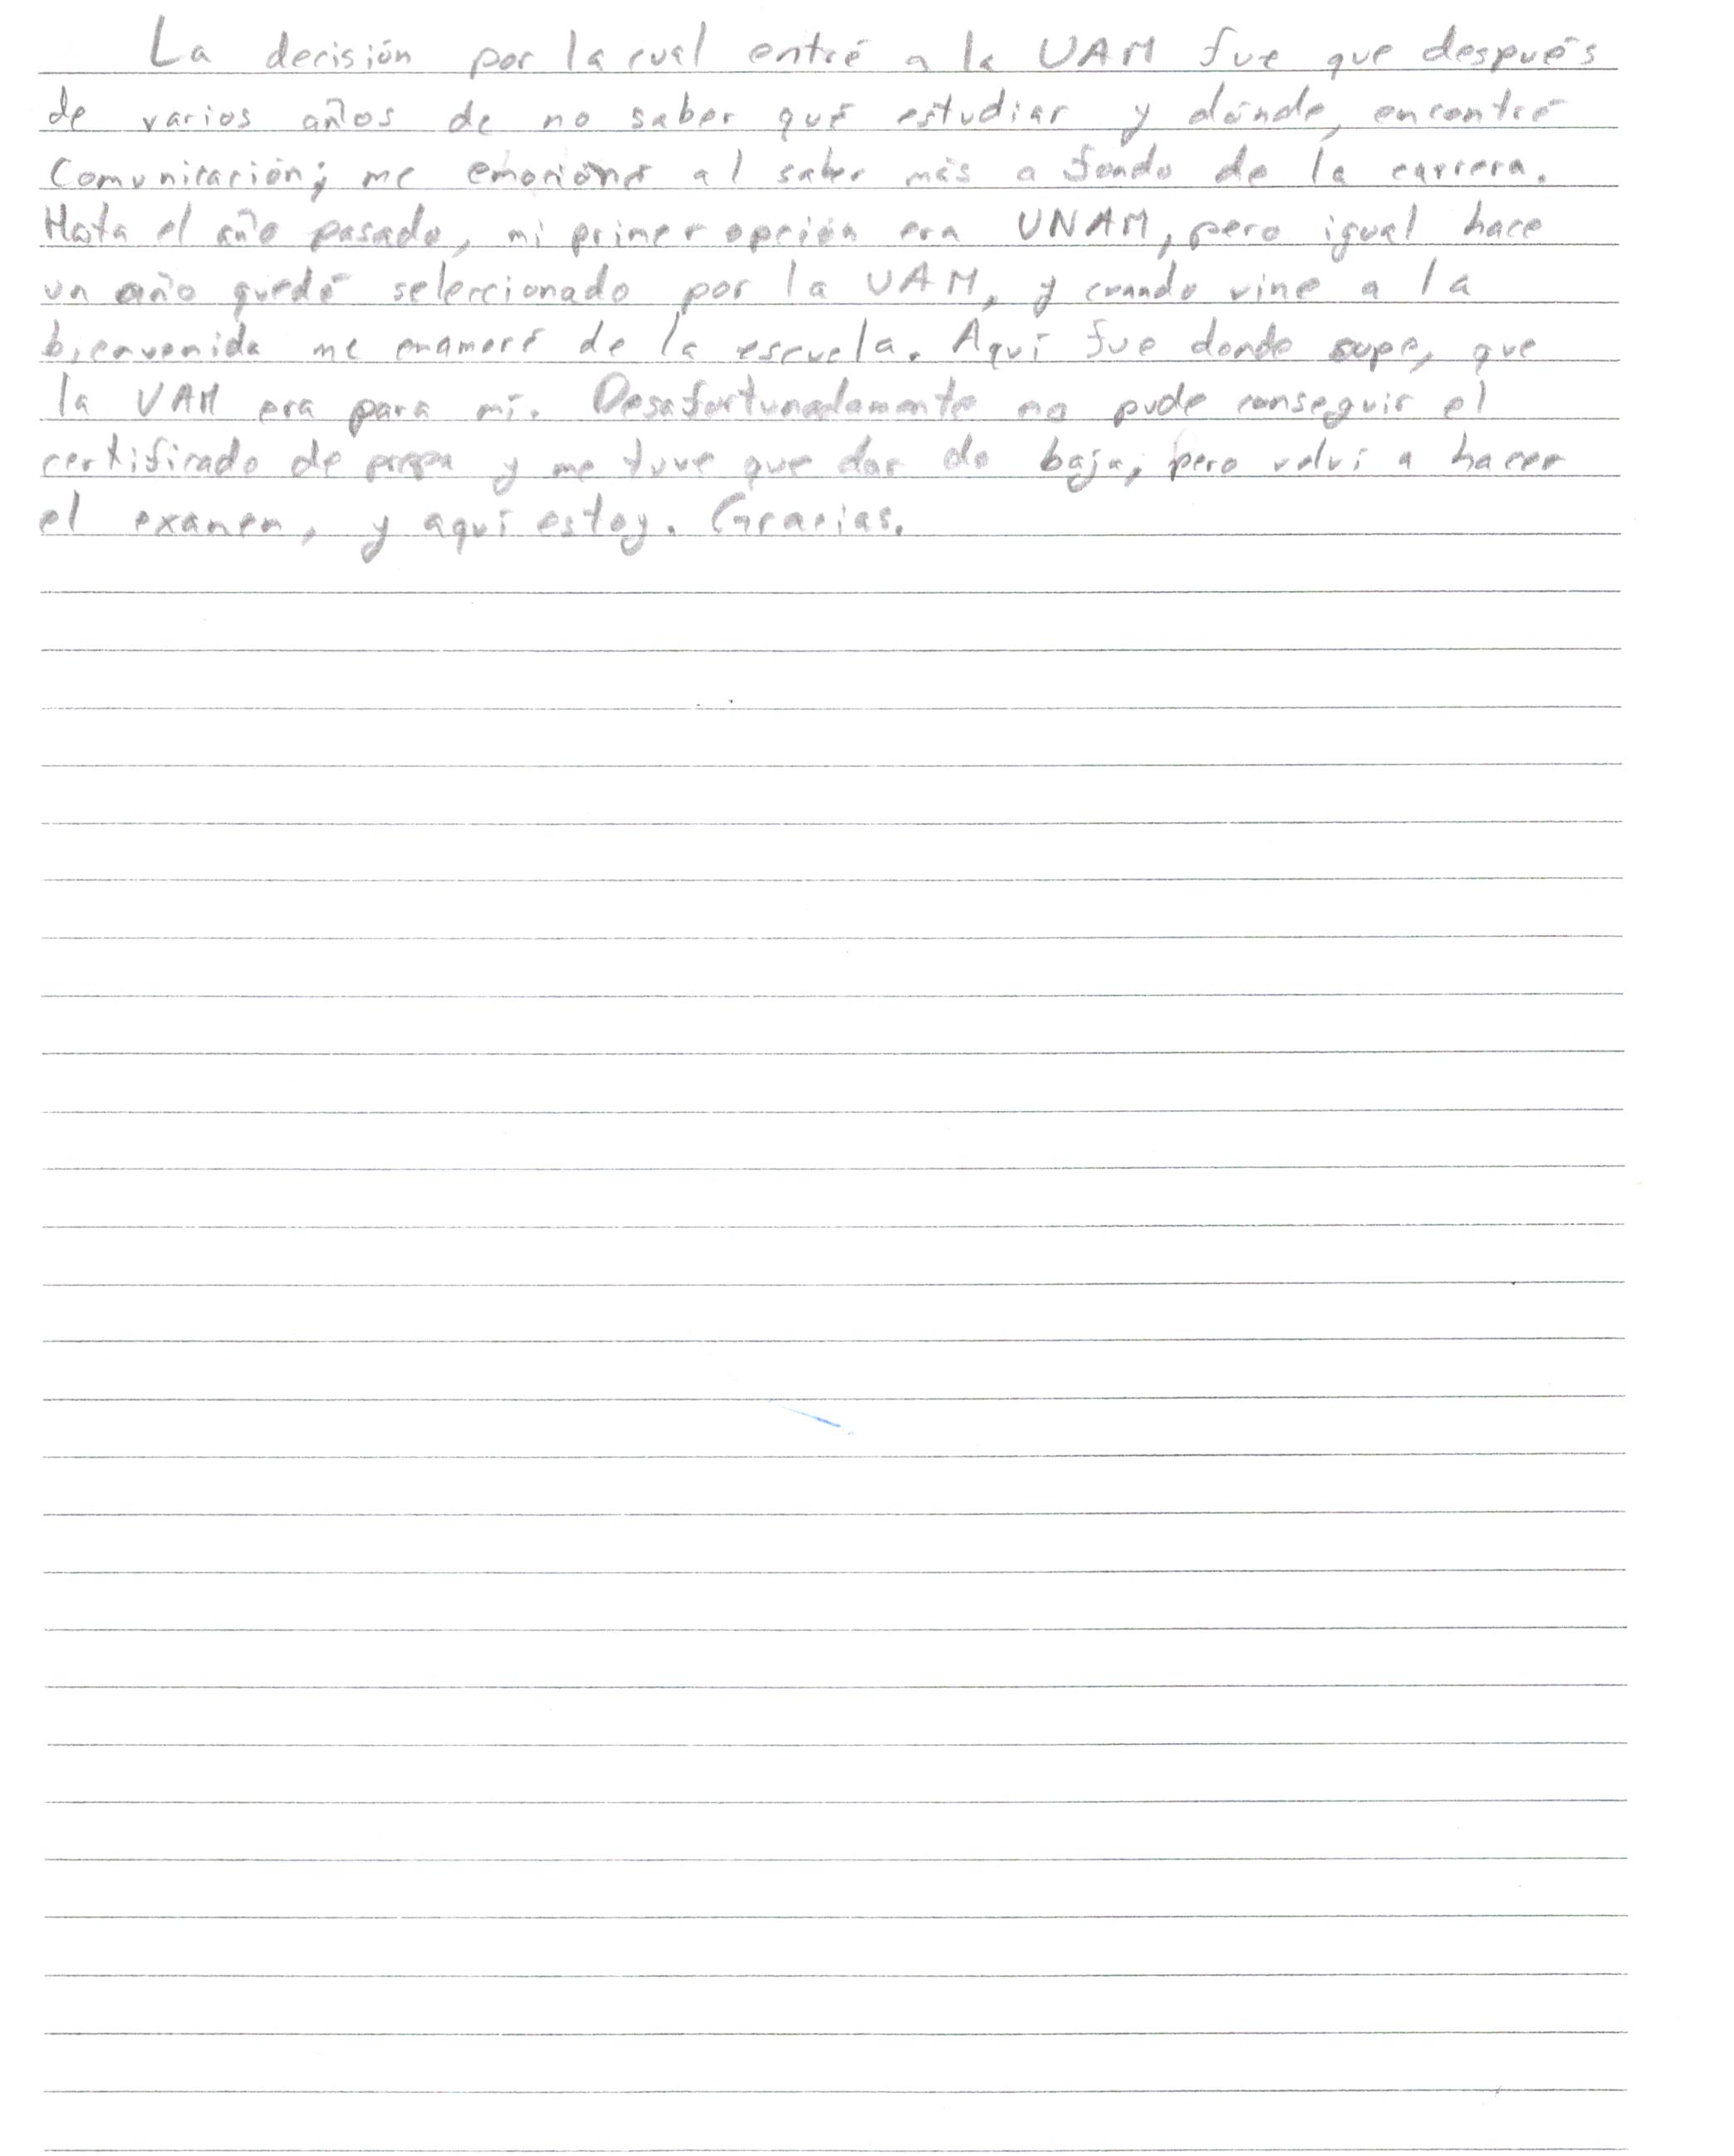 La decisión por la cual entré a la UAM fue que después
de varios años de no saber qué estudiar y dónde, encontré
Comunicación; me emocioné al saber más a fondo de la carrera.
Hasta el año pasado, mi primer opción era UNAM, pero igual hace
un año quedé seleccionado por la UAM, y cuando vine a la
bienvenida me enamoré de la escuela. Aquí fue donde supe, que
la UAM era para mí. Desafortunadamente no pude conseguir el
certificado de prepa y me tuve que dar de baja, pero volví a hacer
el examen, y aquí estoy. Gracias.